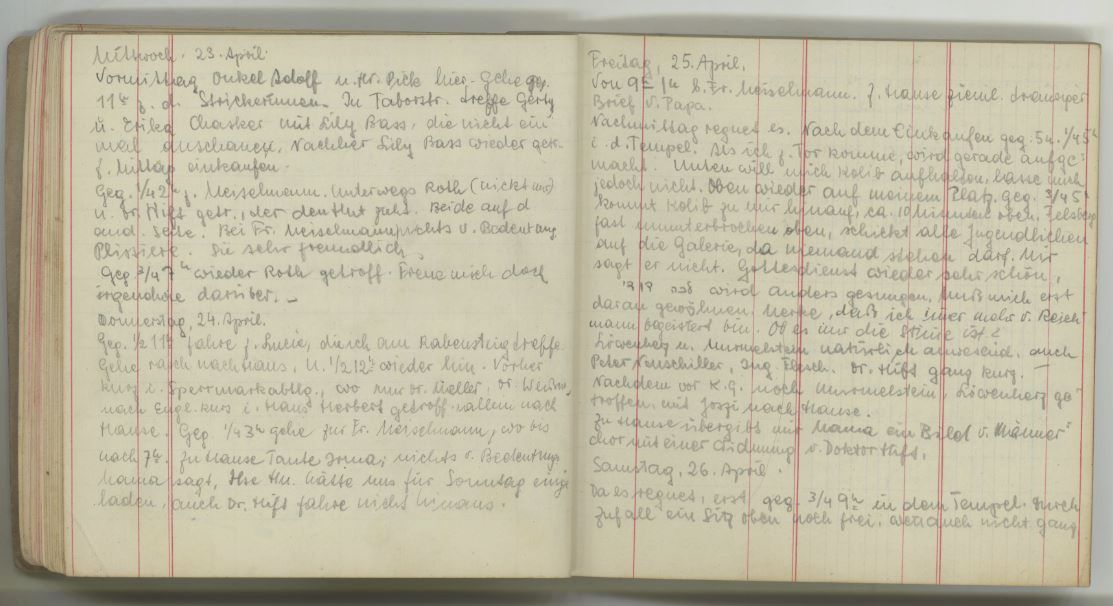 Mittwoch. 23. April.
Vormittag Onkel Adolf u. Hr. Pick hier. Gehe geg.
11h z. d. Strickerinnen. In Taborstr. treffe Gerty
u. Erika Chasker mit Lily Bass, die nicht ein
mal anschauen. Nachher Lily Bass wieder getr.
z. Mittag einkaufen.
Geg. 1/42h z. Meiselmann. Unterwegs Roth (nickt nur)
u. Dr. Hift getr., der den Hut zieht. Beide auf d.
and. Seite. Bei Fr. Meiselmann nichts v. Bedeutung
Plissiere. Sie sehr freundlich.
Geg 3/47h wieder Roth getroff. Freue mich doch
irgendwie darüber. –
Donnerstag, 24. April.
Geg. 1/2 11h fahre z. Lucie, durch am Rabensteig treffe.
Gehe rasch nach Haus, u. 1/2 12h wieder hin. Vorher
kurz i. Sperrmarkabtlg., wo nur Dr. Weiß
nach Engl. kurs i. Haus Herbert getroff. nach
Hause. Geg. 1/43h gehe zur Fr. Meiselmann, wo bis
nach 7h. Zu Hause Tante Irma; nichts v. Bedeutung
Mama sagt, Ilse Hu. hätte uns für Sonntag einge
laden, auch Dr. Hift fahre nicht hinaus.
Freitag, 25. April.
Von 9h b. Fr. Meiselmann. Z. Hause zieml. trauriger
Brief v. Papa.
Nachmittag regnet es. Nach dem Einkaufen geg. 5h. 1/45h
i. d. Tempel. Als ich z. Tor komme, wird gerade aufge-
macht. Unten will mich Kolib aufhalten, lasse mich
jedoch nicht. Oben wieder auf meinem Platz. geg. 3/45h
kommt Kolib zu mir hinauf, ca. 10 Minuten oben. Felsberg
fast ununterbrochen oben, schickt alle Jugendlichen
auf die Galerie, da niemand stehen darf. Mir
sagt er nicht. Gottesdienst wieder sehr schön,
wird anders gesungen. Muß mich erst
daran gewöhnen. Merke, daß ich immer mehr v. Reich
mann begeistert bin. Ob es nur die Stimme ist?
Löwenberg u. Murmelstein natürlich anwesend, auch
Peter Neuschiller, Ing. Flesch. Dr. Hift ganz kurz. –
Nachdem vor K.G. noch Murmelstein, Löwenherz ge-
troffen, mit Joszi nach Hause.
Zu Hause übergibt mir Mama ein Bild v. Männer-
chor mit einer Widmung v. Doktor Hift.
Samstag, 26. April.
Da es regnet, erst geg. 3/4 9h in dem Tempel. Durch
Zufall ein Sitz oben noch frei, wenn auch nicht ganz